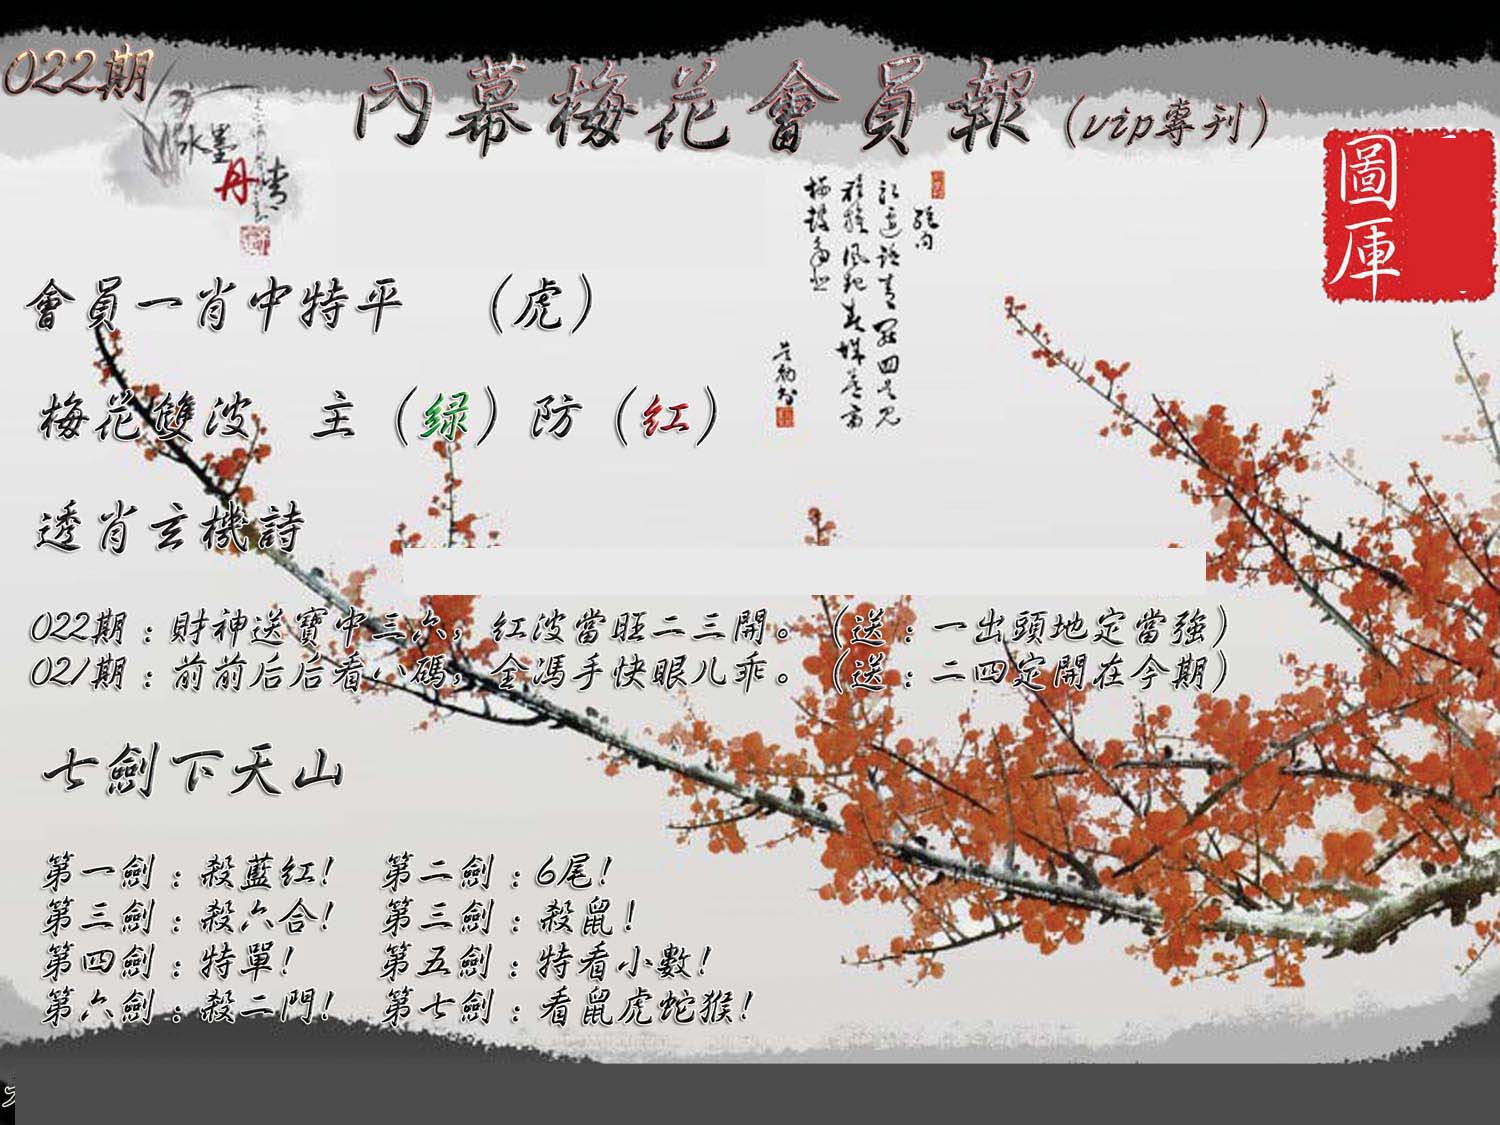 022期
內幕梅花會員報（vip專刊）
水墨
丹青
圖庫
會員一肖中特平 （虎）
梅花雙波 主（綠）防（紅）
透肖玄機詩
022期：財神送寶中三六，紅波當旺二三開。（送：一出頭地定當強）
021期：前前后后看八碼，全馮手快眼儿乖。（送：二四定開在今期）
七劍下天山
第一劍：殺藍紅！ 第二劍：6尾！
第三劍：殺六合！ 第三劍：殺鼠！
第四劍：特單！ 第五劍：特看小數！
第六劍：殺二門！ 第七劍：看鼠虎蛇猴！